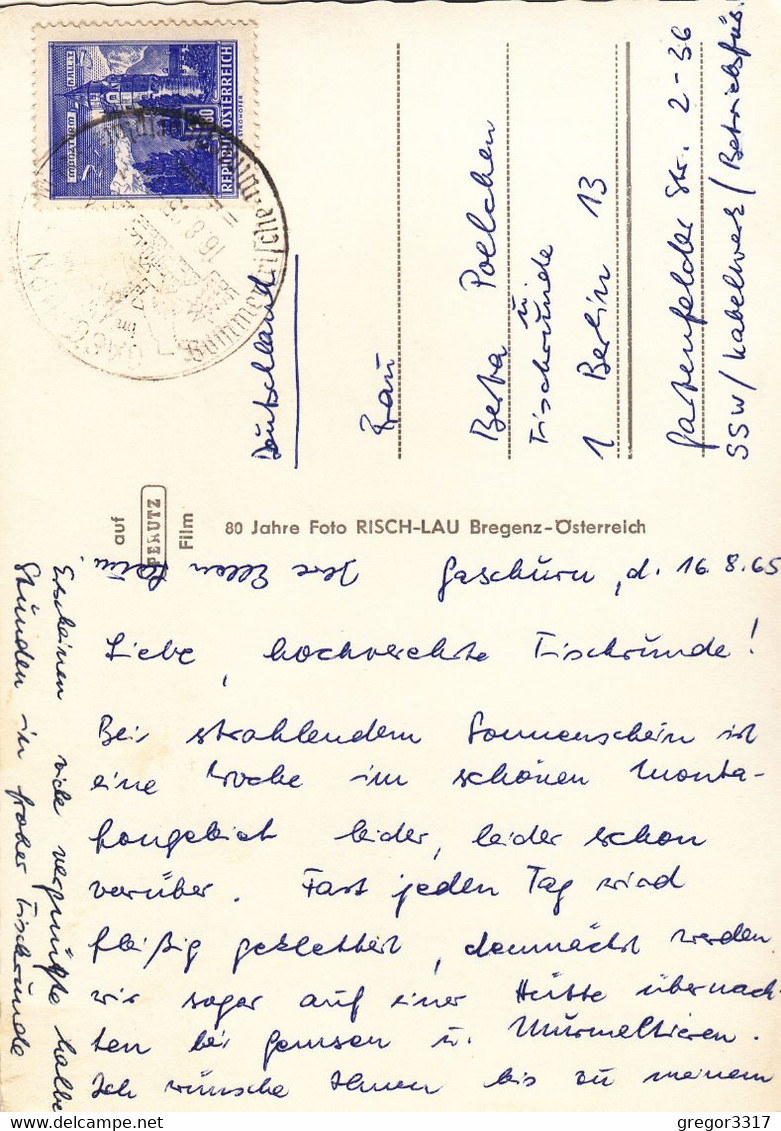 MÜNZTURM HALL I. T.
REPUBLIK ÖSTERREICH
16. 8.
Deutschland
Frau
Berta Poelchen
u.
Tischrunde
1 Berlin 13
Gartenfelder Str. 2-36
SSW/Kabelwerk/Betriebsfür.
auf
PERUTZ
Film
80 Jahre Foto RISCH-LAU Bregenz-Österreich
Gaschurn, d. 16.8.65
Liebe, hochverehrte Tischrunde!
Bei strahlendem Sonnenschein ist
eine Woche im schönen Monta-
fongebiet leider, leider schon
vorüber. Fast jeden Tag wird
fleißig geklettert, demnächst werden
wir sogar auf einer Hütte übernach-
ten bei Gemsen u. Murmeltieren.
Ich wünsche Ihnen bis zu meinem
Erscheinen viele vergnügte halbe
Stunden in froher Tischrunde
Ihre Ellen
gregor3317